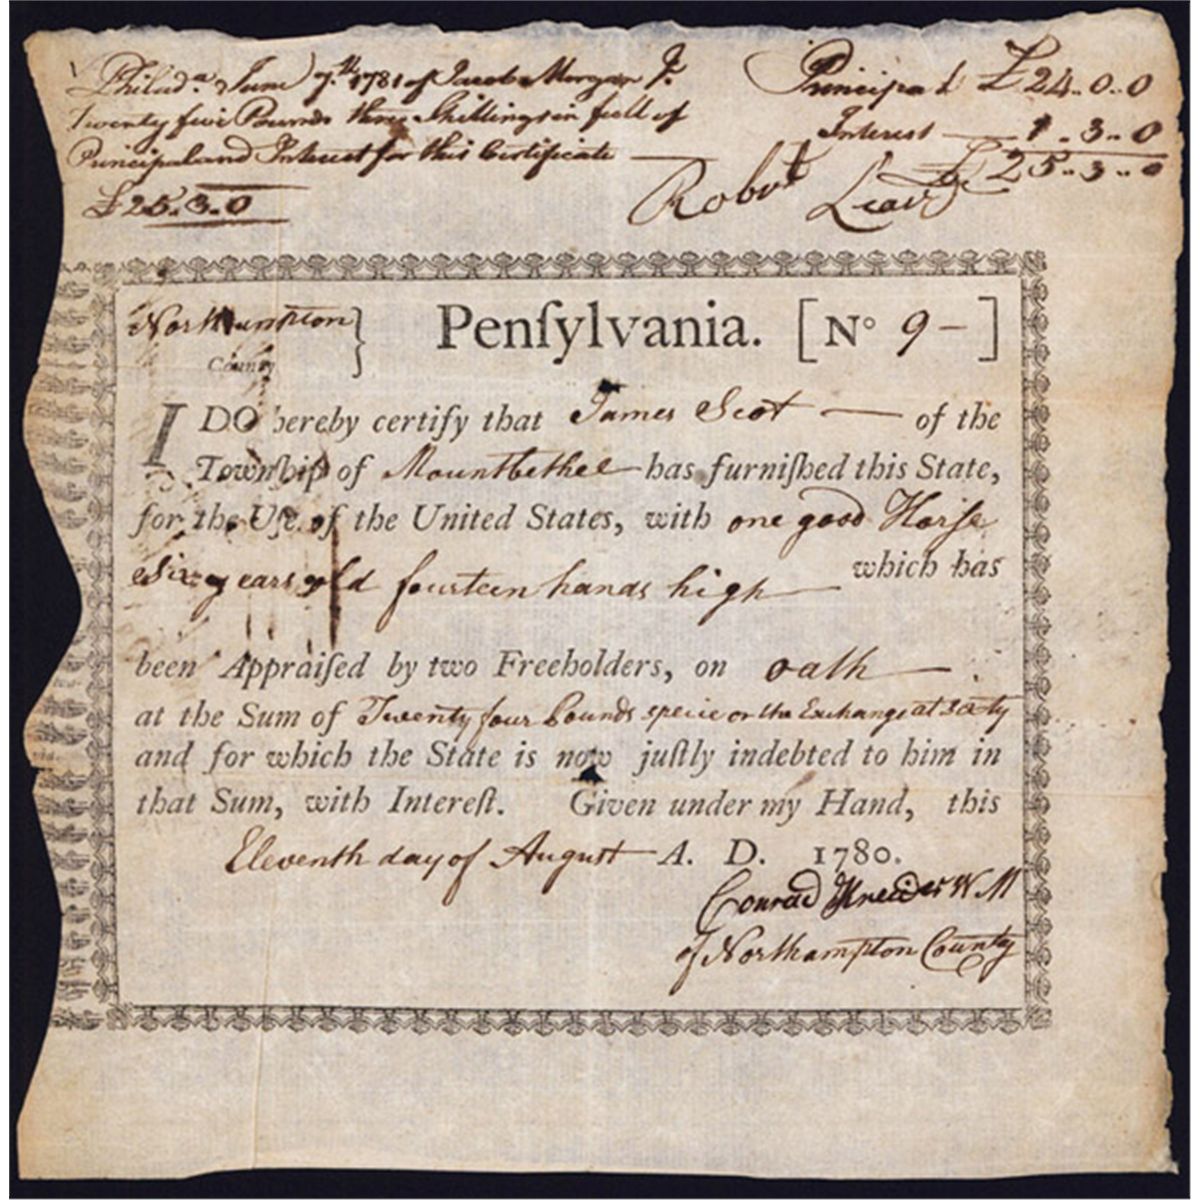 Philad.ᵃ June 7.th 1781 of Jacob Morgan Jr.
Twenty five Pounds three Shillings in full of
Principal and Interest for this Certificate
£25.3.0
Principal £24..0..0
Interest 1..3..0
£25..3..0
Robert
Northampton
County
Penſylvania. [Nº 9 - ]
I DO hereby certify that James Scot of the
Townſhip of Mountbethel has furniſhed this State,
for the Uſe of the United States, with one good Horse
Six years old fourteen hands high which has
been Appraiſed by two Freeholders, on oath
at the Sum of Twenty four Pounds specie or the Exchange at sixty
and for which the State is now juſtly indebted to him in
that Sum, with Intereſt. Given under my Hand, this
Eleventh day of August A. D. 1780.
Conrad Kreider W M
of Northampton County